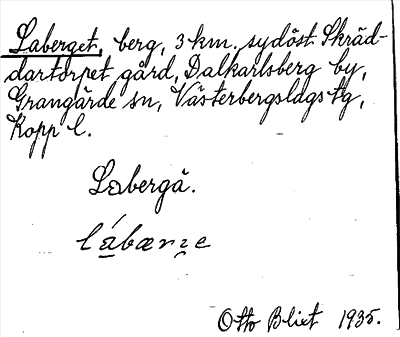 Laberget, berg, 3 km. sydöst Skräd-
dartorpet gård, Dalkarlsberg by,
Grangärde sn, Västerbergslags tg,
Kopp l.
Labergä.
lábærʒe
Otto Blixt 1935.